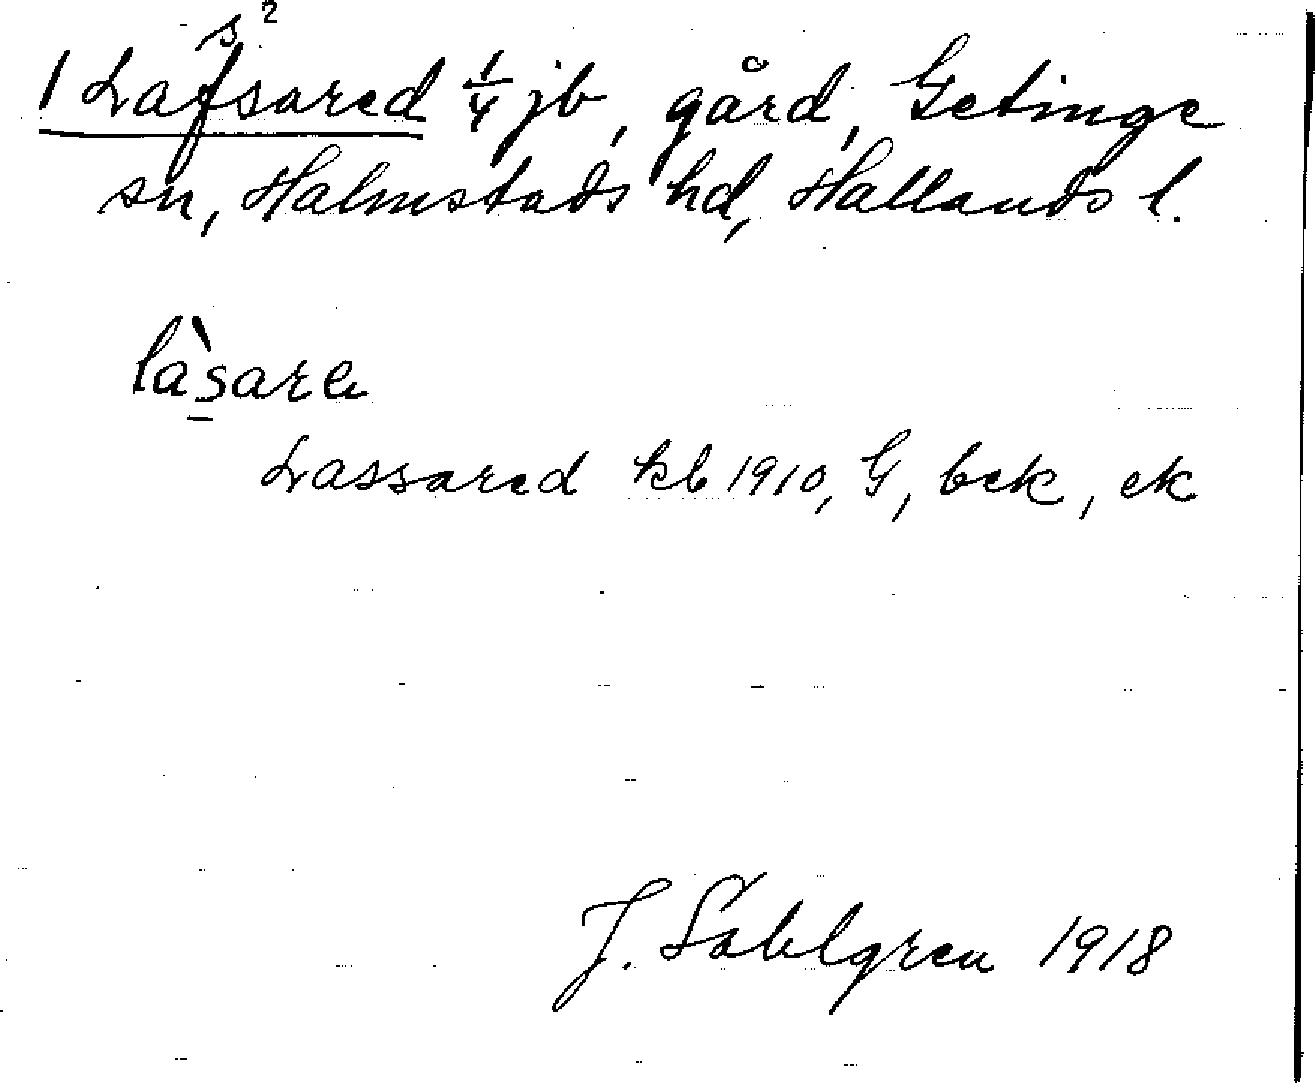 s 2
1 Lafsared 1/4 jb, gård, Getinge
sn, Halmstads hd, Hallands l.
là̱sarɛ
Lassared kb 1910, G, bek, ek
J. Sahlgren 1918